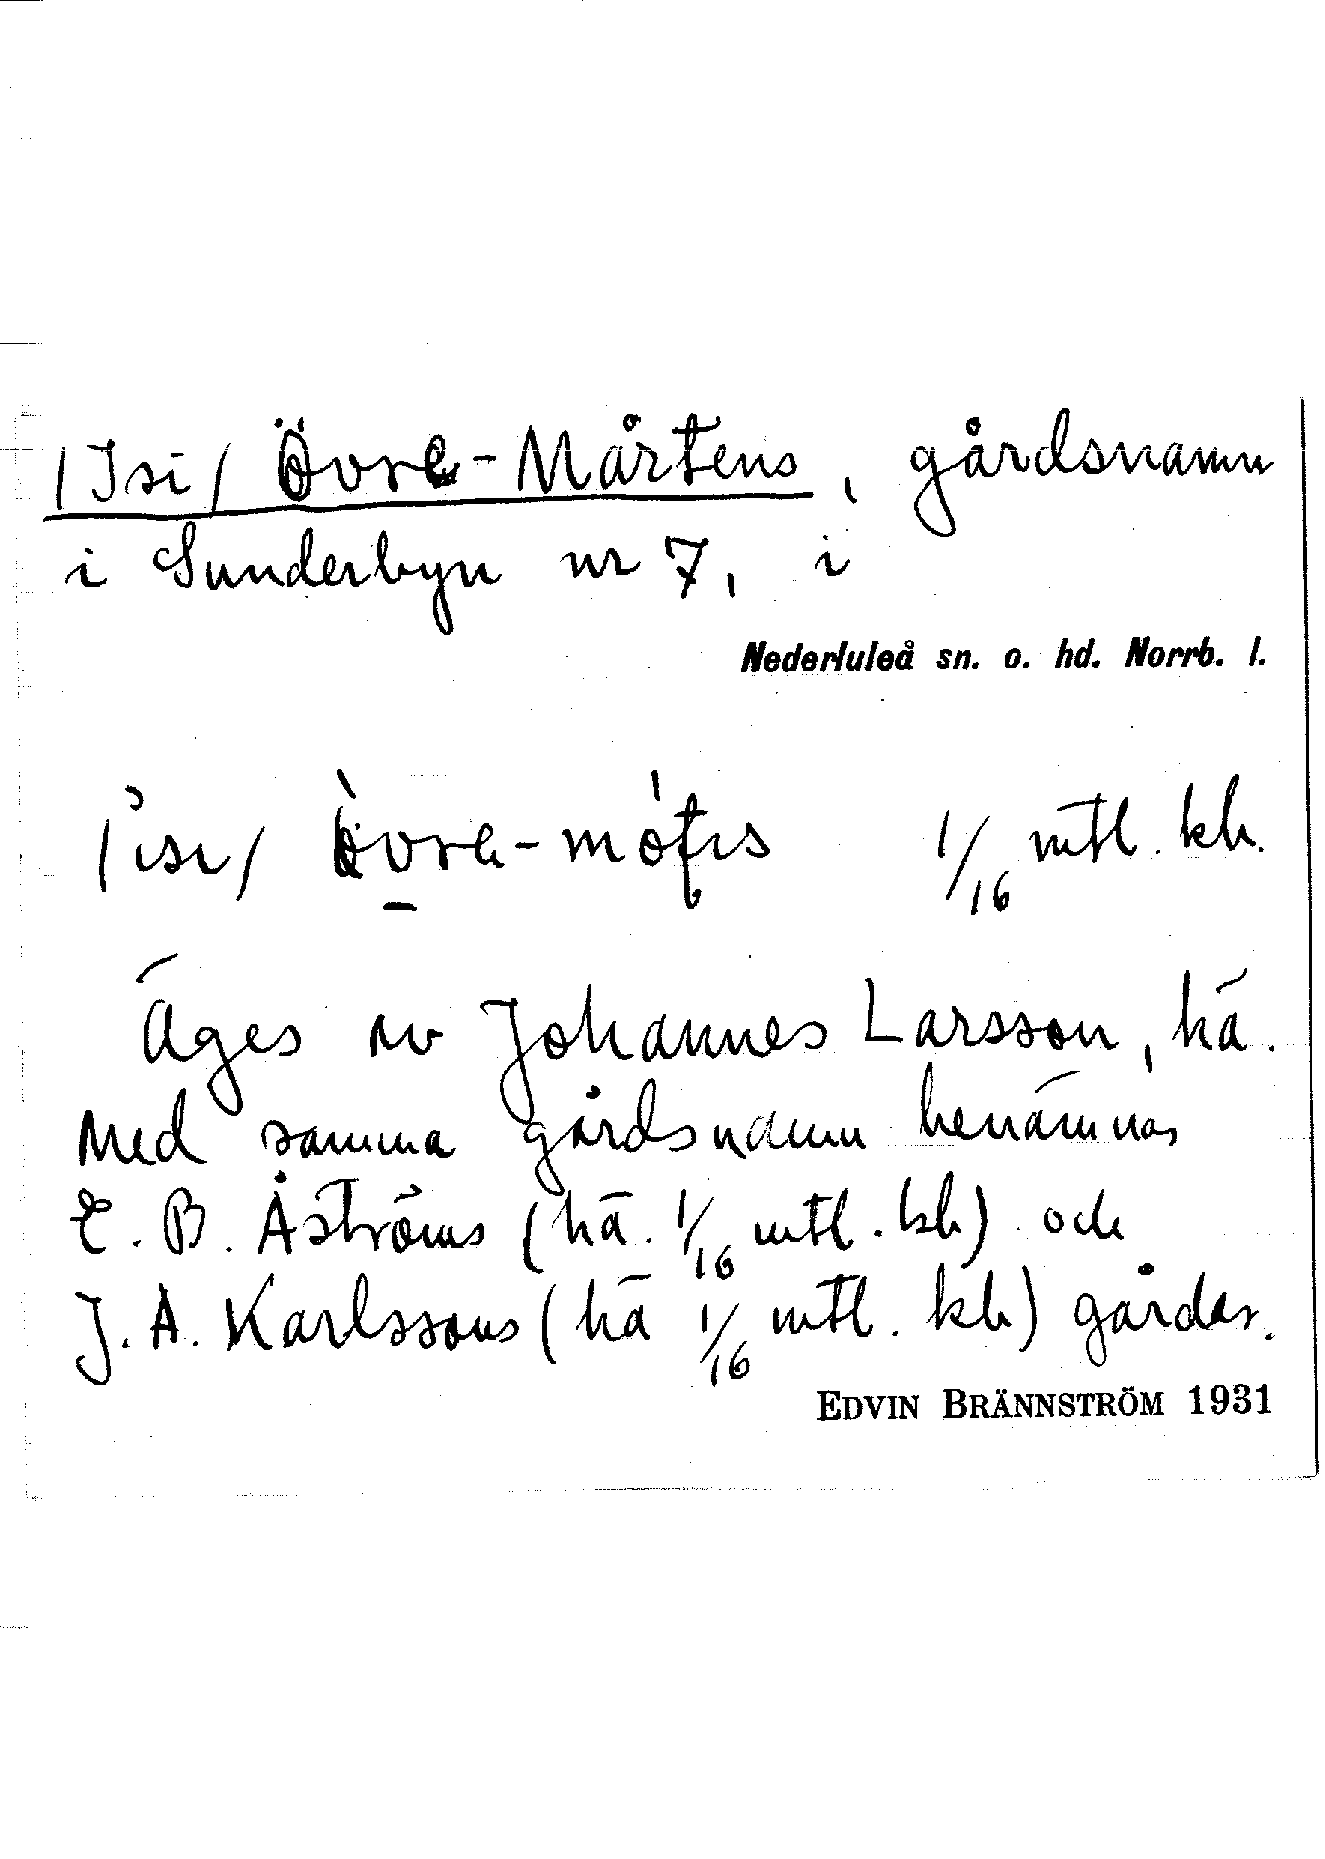 /Isi/ Övre-Mårtens, gårdsnamn
i Sunderbyn nr 7, i
Nederluleå sn. o. hd. Norrb. l.
1/16 mtl. kh.
Äges av Johannes Larsson, hä.
Med samma gårdsnamn benämnas
E. B. Åströms (hä. 1/16 mtl. kh) och
J. A. Karlssons (hä 1/16 mtl. kh) gårdar.
EDVIN BRÄNNSTRÖM 1931